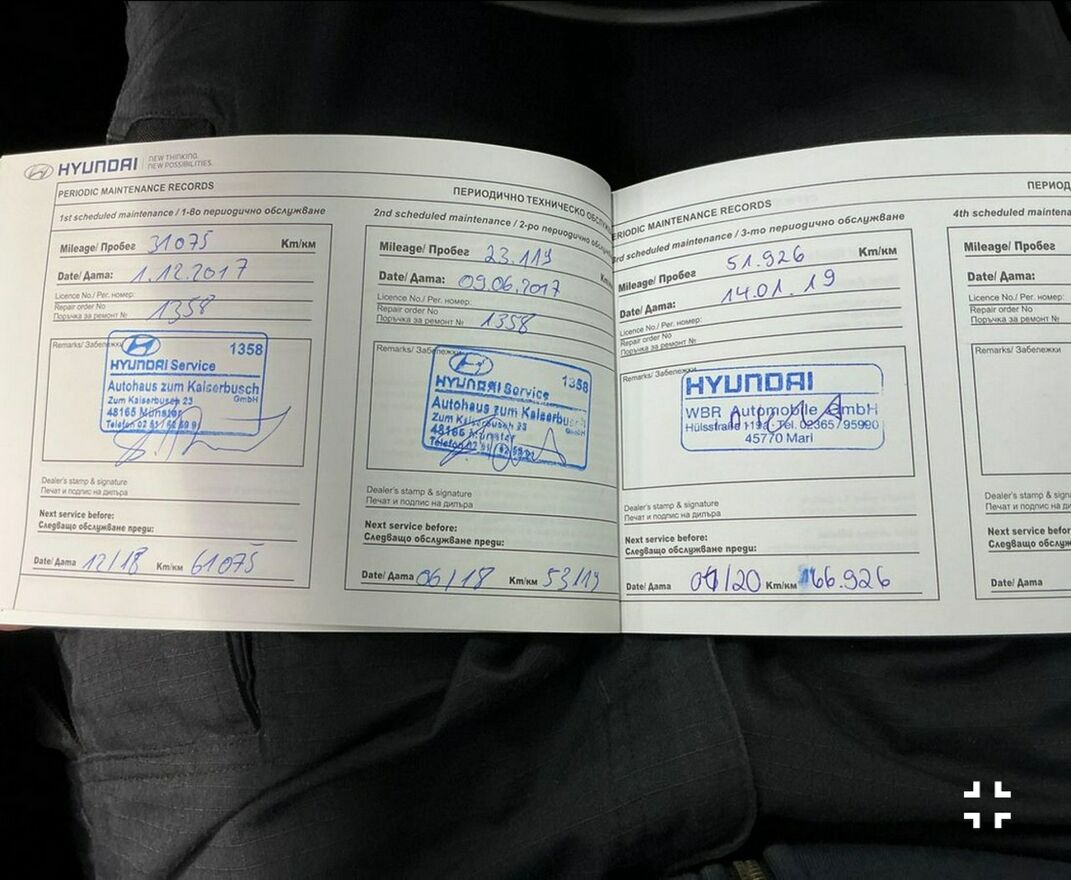 HYUNDAI NEW THINKING. NEW POSSIBILITIES.
PERIODIC MAINTENANCE RECORDS
ПЕРИОДИЧНО ТЕХНИЧЕСКО ОБСЛУ
1st scheduled maintenance / 1-во периодично обслужване
Mileage/ Пробег 31075 Km/км
Date/ Дата: 1.12.2017
Licence No./ Рег. номер:
Repair order No
Поръчка за ремонт № 1358
Remarks/ Забележки
HYUNDAI Service 1358
Autohaus zum Kaiserbusch
GmbH
Zum Kaiserbusch 23
48165 Münster
Dealer's stamp & signature
Печат и подпис на дилъра
Next service before:
Следващо обслужване преди:
Date/ Дата 12/18 Km/км 61075
2nd scheduled maintenance / 2-ро периодично обслу
Mileage/ Пробег 23.119 Km
Date/ Дата: 09.06.2017
Licence No./ Рег. номер:
Repair order No
Поръчка за ремонт № 1358
Remarks/ Забележки
HYUNDAI Service 1358
Autohaus zum Kaiserbusch
GmbH
Zum Kaiserbusch 23
48165 Münster
Dealer's stamp & signature
Печат и подпис на дилъра
Next service before:
Следващо обслужване преди:
Date/ Дата 06/18 Km/км 53119
ERIODIC MAINTENANCE RECORDS
ПЕРИОД
3rd scheduled maintenance / 3-то периодично обслужване
Mileage/ Пробег 51.926 Km/км
Date/ Дата: 14.01.19
Licence No./ Рег. номер:
Repair order No
Поръчка за ремонт №
Remarks/ Забележки
HYUNDAI
WBR Automobile GmbH
Hülsstraße Tel. 02365/95990
45770 Marl
Dealer's stamp & signature
Печат и подпис на дилъра
Next service before:
Следващо обслужване преди:
Date/ Дата 01/20 Km/км 66.926
4th scheduled maintena
Mileage/ Пробег
Date/ Дата:
Licence No./ Рег. номер:
Repair order No
Поръчка за ремонт №
Remarks/ Забележки
Dealer's stamp & signa
Печат и подпис на дил
Next service before:
Следващо обслужв
Date/ Дата